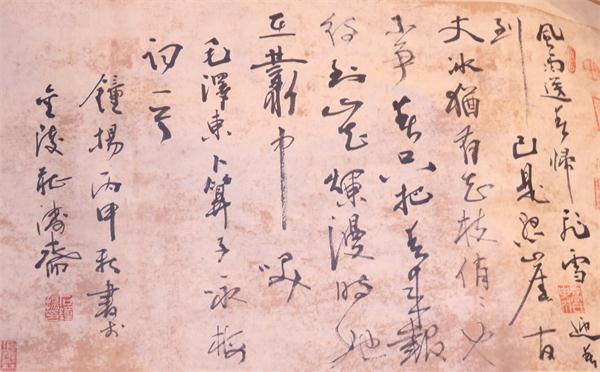 風雨送春歸飛雪迎春
到已是懸崖百
丈冰猶有花枝俏〻也
不爭春只把春來報
待到山花爛漫時她
在叢中笑
毛澤東卜算子詠梅
詞一首
鐘揚丙申秋書於
金陵耻齋